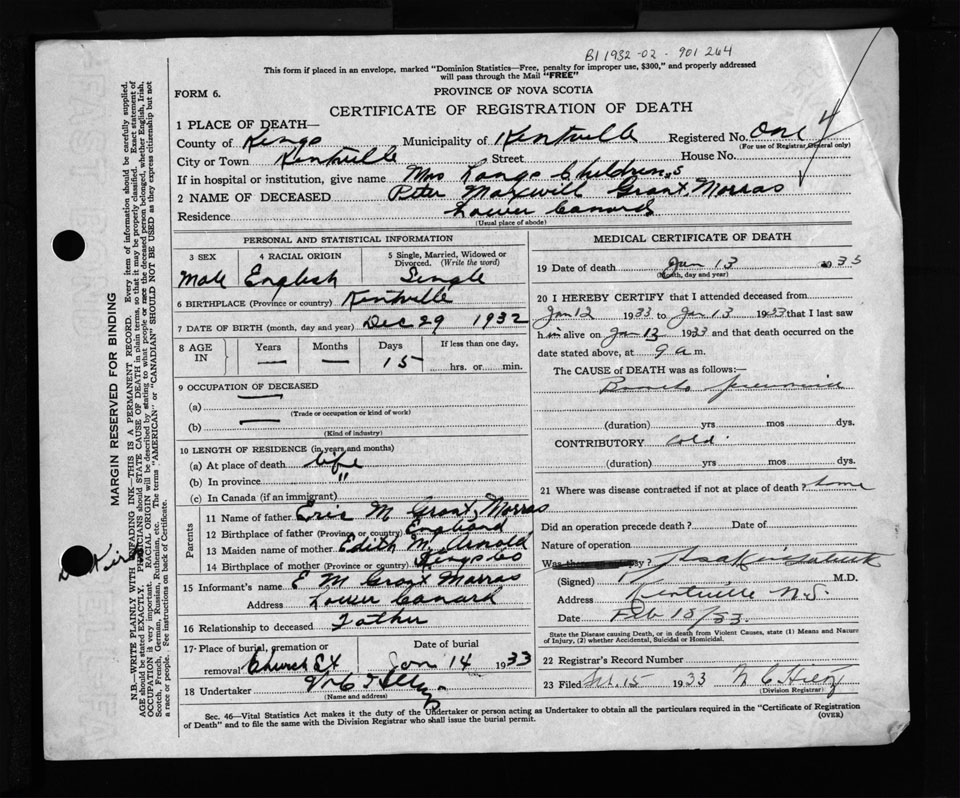 B1 1932-02-901264
This form if placed in an envelope, marked "Dominion Statistics—Free, penalty for improper use, $300," and properly addressed
will pass through the Mail "FREE"
FORM 6.
PROVINCE OF NOVA SCOTIA
CERTIFICATE OF REGISTRATION OF DEATH
1 PLACE OF DEATH—
County of Kings Municipality of Kentville Registered No. One 4
(For use of Registrar General only)
City or Town Kentville Street House No.
If in hospital or institution, give name Mrs Longs Childrens
2 NAME OF DECEASED Peter Maxwill Grant Morras
Residence Lower Canard
(Usual place of abode)
PERSONAL AND STATISTICAL INFORMATION
3 SEX 4 RACIAL ORIGIN 5 Single, Married, Widowed or Divorced. (Write the word)
Male English Single
6 BIRTHPLACE (Province or country) Kentville
7 DATE OF BIRTH (month, day and year) Dec 29 1932
8 AGE IN Years — Months — Days 15 If less than one day, hrs. or min.
9 OCCUPATION OF DECEASED
(a) —
(Trade or occupation or kind of work)
(b) —
(Kind of industry)
10 LENGTH OF RESIDENCE (in years and months)
(a) At place of death life
(b) In province "
(c) In Canada (if an immigrant)
Parents
11 Name of father Eric M Grant Morras
12 Birthplace of father (Province or country) England
13 Maiden name of mother Edith M. Arnold
14 Birthplace of mother (Province or country) Kings Co
15 Informant's name E M Grant Morras
Address Lower Canard
16 Relationship to deceased Father
17 Place of burial, cremation or removal Church St Date of burial Jan 14 1933
18 Undertaker
(Name and address)
MEDICAL CERTIFICATE OF DEATH
19 Date of death Jan 13 1933
(Month, day and year)
20 I HEREBY CERTIFY that I attended deceased from
Jan 12 1933 to Jan 13 1933 that I last saw
him alive on Jan 13 1933 and that death occurred on the
date stated above, at 9 a m.
The CAUSE of DEATH was as follows:—
Broncho pneumonia
(duration) yrs mos dys.
CONTRIBUTORY Cold.
(duration) yrs mos dys.
21 Where was disease contracted if not at place of death? Home
Did an operation precede death? Date of
Nature of operation
Was there
(Signed) M.D.
Address Kentville N.S.
Date Feb 18/33.
State the Disease causing Death, or in death from Violent Causes, state (1) Means and Nature
of Injury, (2) whether Accidental, Suicidal or Homicidal.
22 Registrar's Record Number
23 Filed 15 1933
(Division Registrar)
Sec. 46—Vital Statistics Act makes it the duty of the Undertaker or person acting as Undertaker to obtain all the particulars required in the "Certificate of Registration
of Death" and to file the same with the Division Registrar who shall issue the burial permit.
(OVER)
MARGIN RESERVED FOR BINDING
N.B.—WRITE PLAINLY WITH UNFADING INK—THIS IS A PERMANENT RECORD. Every item of information should be carefully supplied.
AGE should be stated EXACTLY. PHYSICIANS should STATE CAUSE OF DEATH in plain terms, so that it may be properly classified. Exact statement of
OCCUPATION is very important. RACIAL ORIGIN will be described by stating to what people or race the deceased person belonged, whether English, Irish,
Scotch, French, German, Russian, Ruthenian, etc. The terms "AMERICAN" or "CANADIAN" SHOULD NOT BE USED as they express citizenship but not
a race or people. See instructions on back of Certificate.